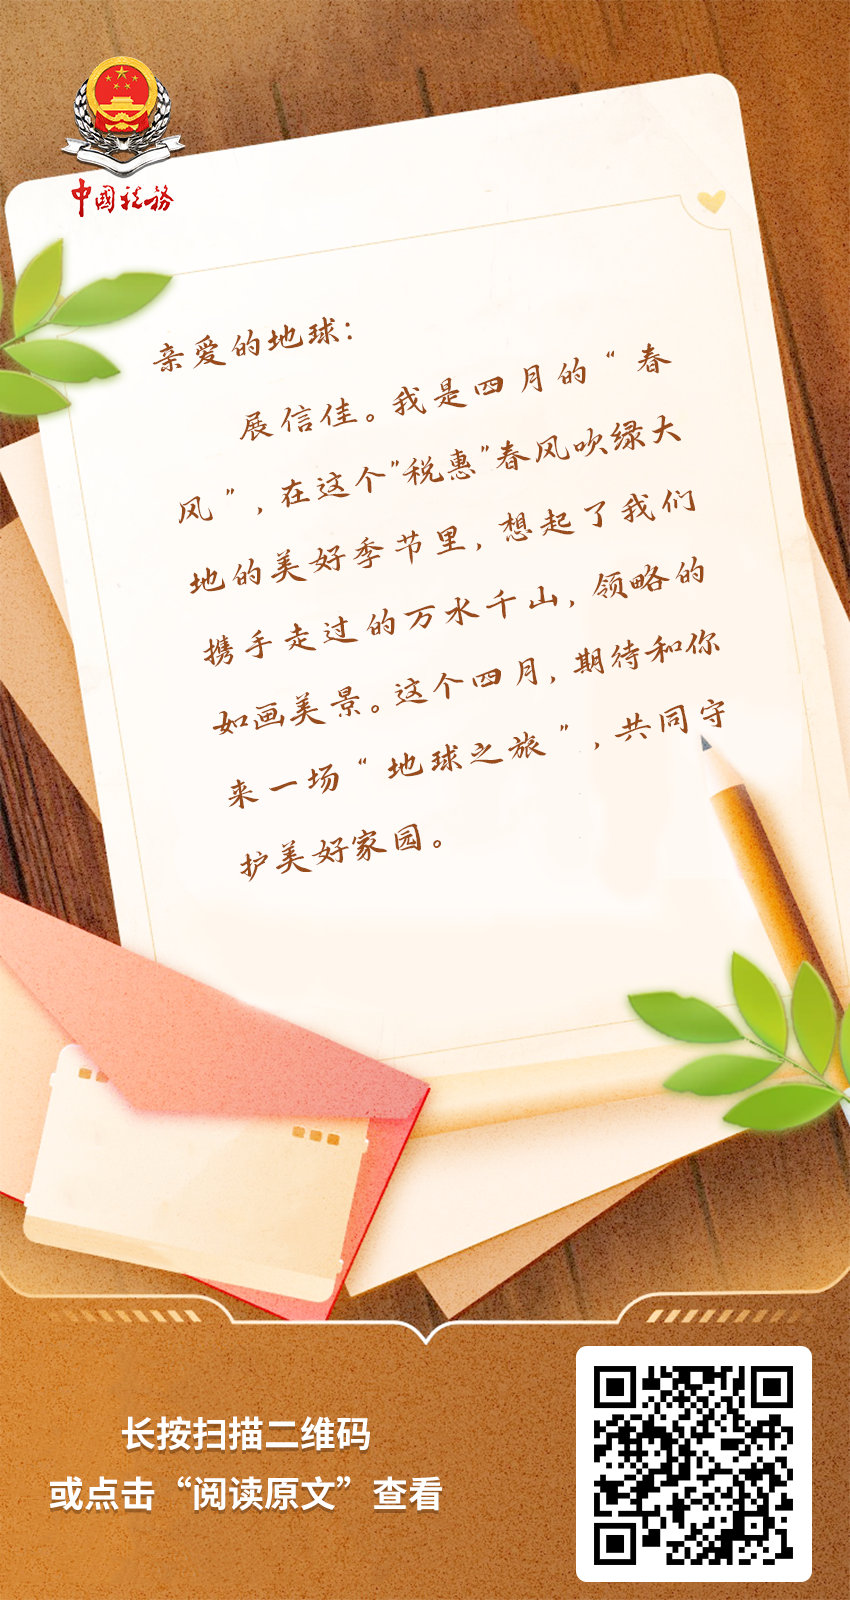 中国税务
亲爱的地球：
展信佳。我是四月的“春
风”，在这个"税惠"春风吹绿大
地的美好季节里，想起了我们
携手走过的万水千山，领略的
如画美景。这个四月，期待和你
来一场“地球之旅”，共同守
护美好家园。
长按扫描二维码
或点击“阅读原文”查看